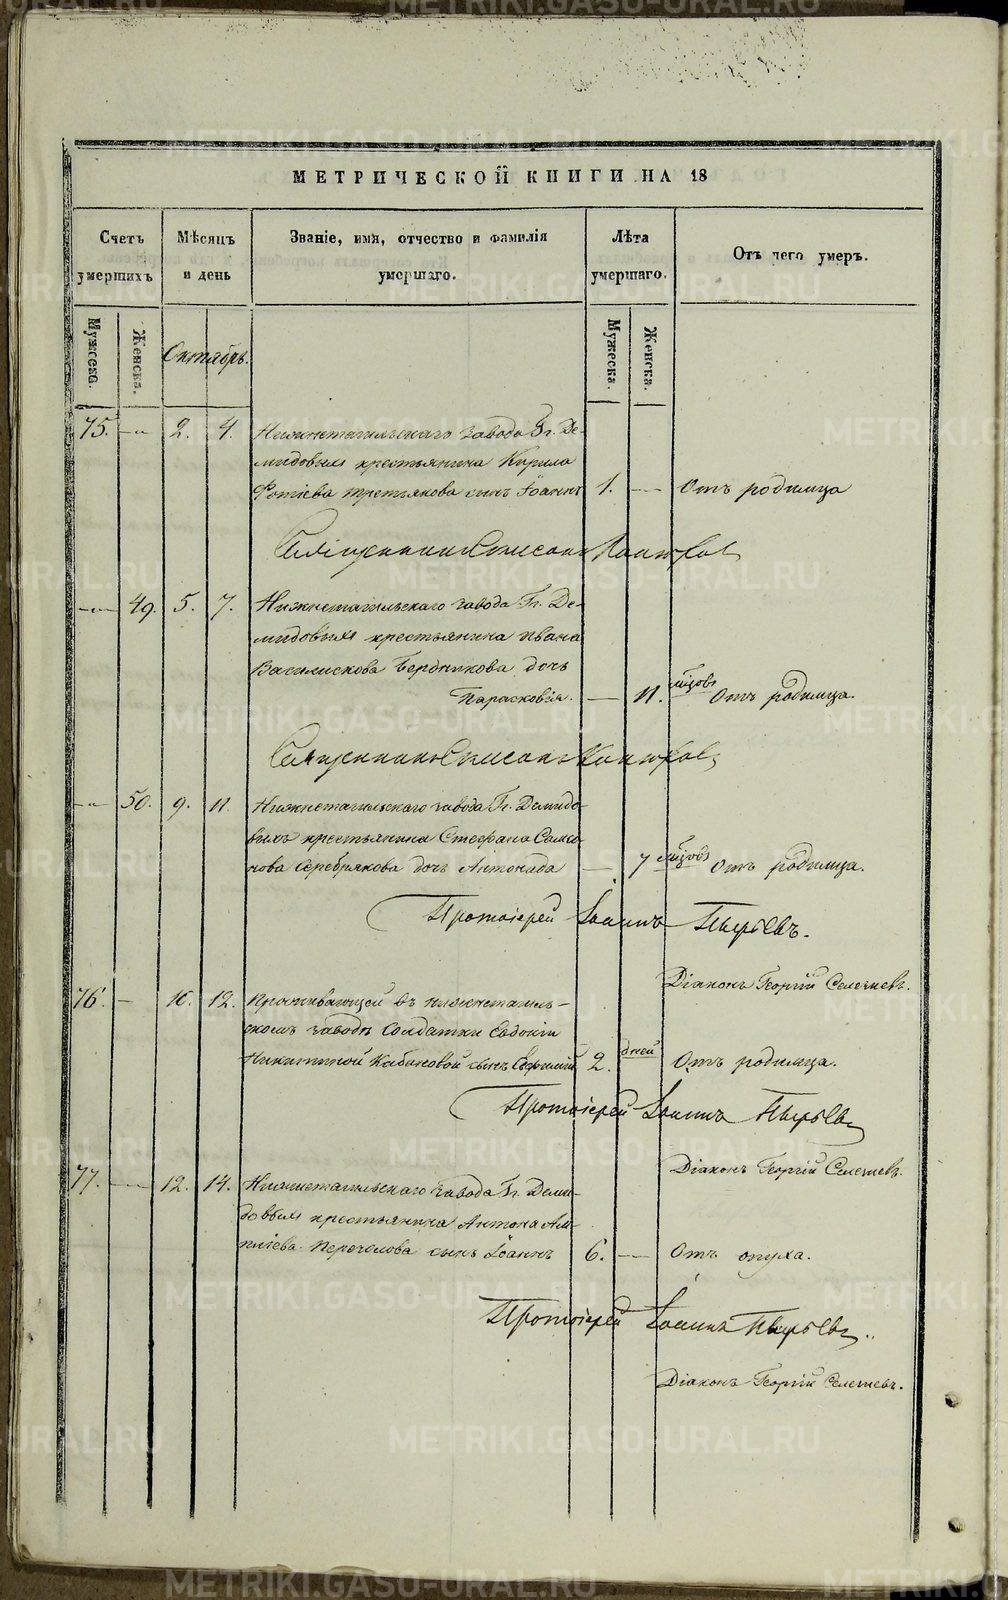 МЕТРИЧЕСКОЙ КНИГИ НА 18
Счетъ умершихъ
Мѣсяцъ и день
Званіе, имя, отчество и фамилія умершаго.
Лѣта умершаго.
Отъ чего умеръ.
Мужеска.
Женска.
Октябрь.
Мужеска.
Женска.
75. 2. 4. Нижнетагильскаго завода Гг. Де-
мидовыхъ крестьянина Кирила
Фотіева Третьякова сынъ Іоаннъ 1. Отъ родимца
Священникъ
49. 5. 7. Нижнетагильскаго завода Гг. Де-
мидовыхъ крестьянина Ивана
Василискова Бердникова дочь
Парасковія. 11. мѣсяцовъ Отъ родимца.
Священникъ
50. 9. 11. Нижнетагильскаго завода Гг. Демидо-
выхъ крестьянина Стефана Самсо-
нова Серебрякова дочь Антонида 7 мѣсяцовъ Отъ родимца.
Протоіерей Іоаннъ Пырьевъ.
Діаконъ Георгій Селезневъ.
76. 10. 12. Проживающей въ Нижнетагиль-
скомъ заводѣ Солдатки Евдокіи
Никитиной Кабаковой сынъ 2. дней Отъ родимца.
Протоіерей Іоаннъ Пырьевъ
Діаконъ Георгій Селезневъ.
77. 12. 14. Нижнетагильскаго завода Гг. Деми-
довыхъ крестьянина Антона
сынъ Іоаннъ 6. Отъ опуха.
Протоіерей Іоаннъ Пырьевъ.
Діаконъ Георгій Селезневъ.
METRIKI.GASO-URAL.RU